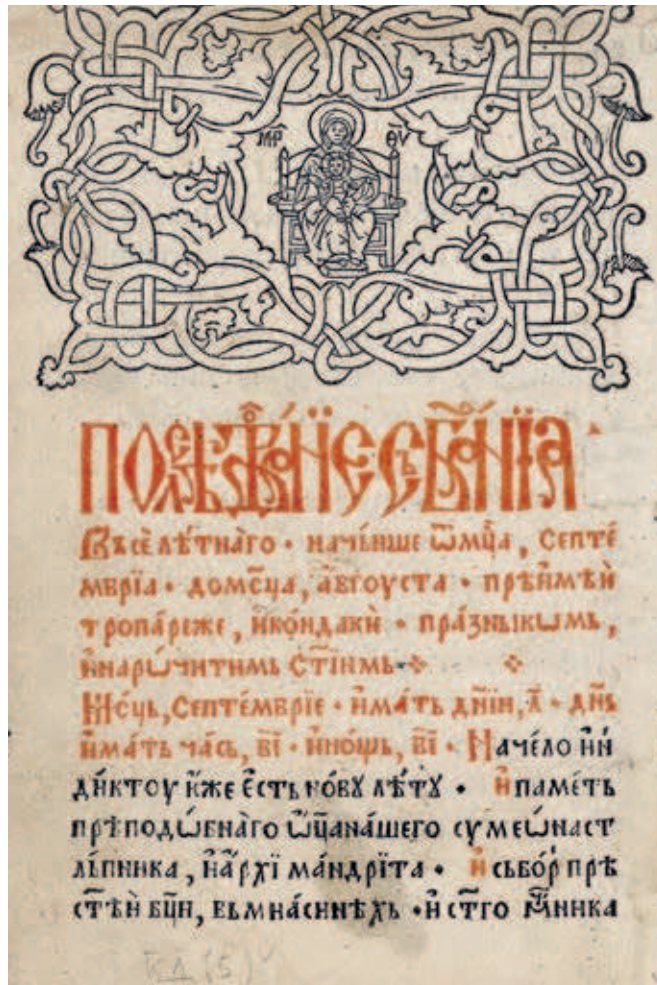 МР҃ ѲѴ҃
ПОСЛѢ́ДОВАНЇЕ СЪБРА́НЇА ·
Въсѐ лѣ́тнаго · наче́нше ѿмц҃а , Септе́
мврїа · домⷭ҇ца , а҆́вгоуста · прѣи҆мѣ́и҆
тропа́реже , и҆ко́ндакѝ · пра́зныкѡмь ,
и҆нарѡ́читимь ст҃іимь ·
Мⷭ҇ць , Септе́мврїе · и҆́мать дні҃и , л҃ · дн҃ь
и҆́мать ча́сь , ві҃ · и҆но́щь , ві҃ · Наче́ло и҆н
ди́ктоу и҆́же є҆́сть но́вꙋ лѣ́тꙋ · и҆ паме́ть
прѣподѡ́бнаго ѡ҆ц҃ана́шего сумеѡ́наст
лъ́пника , и҆ а҆рхїма́ндрїта · и҆ сьбо́р прѣ
ст҃ѣи бц҃и , вьмиа́синѣхь · и҆ ст҃го мч҃ника
КД (5)